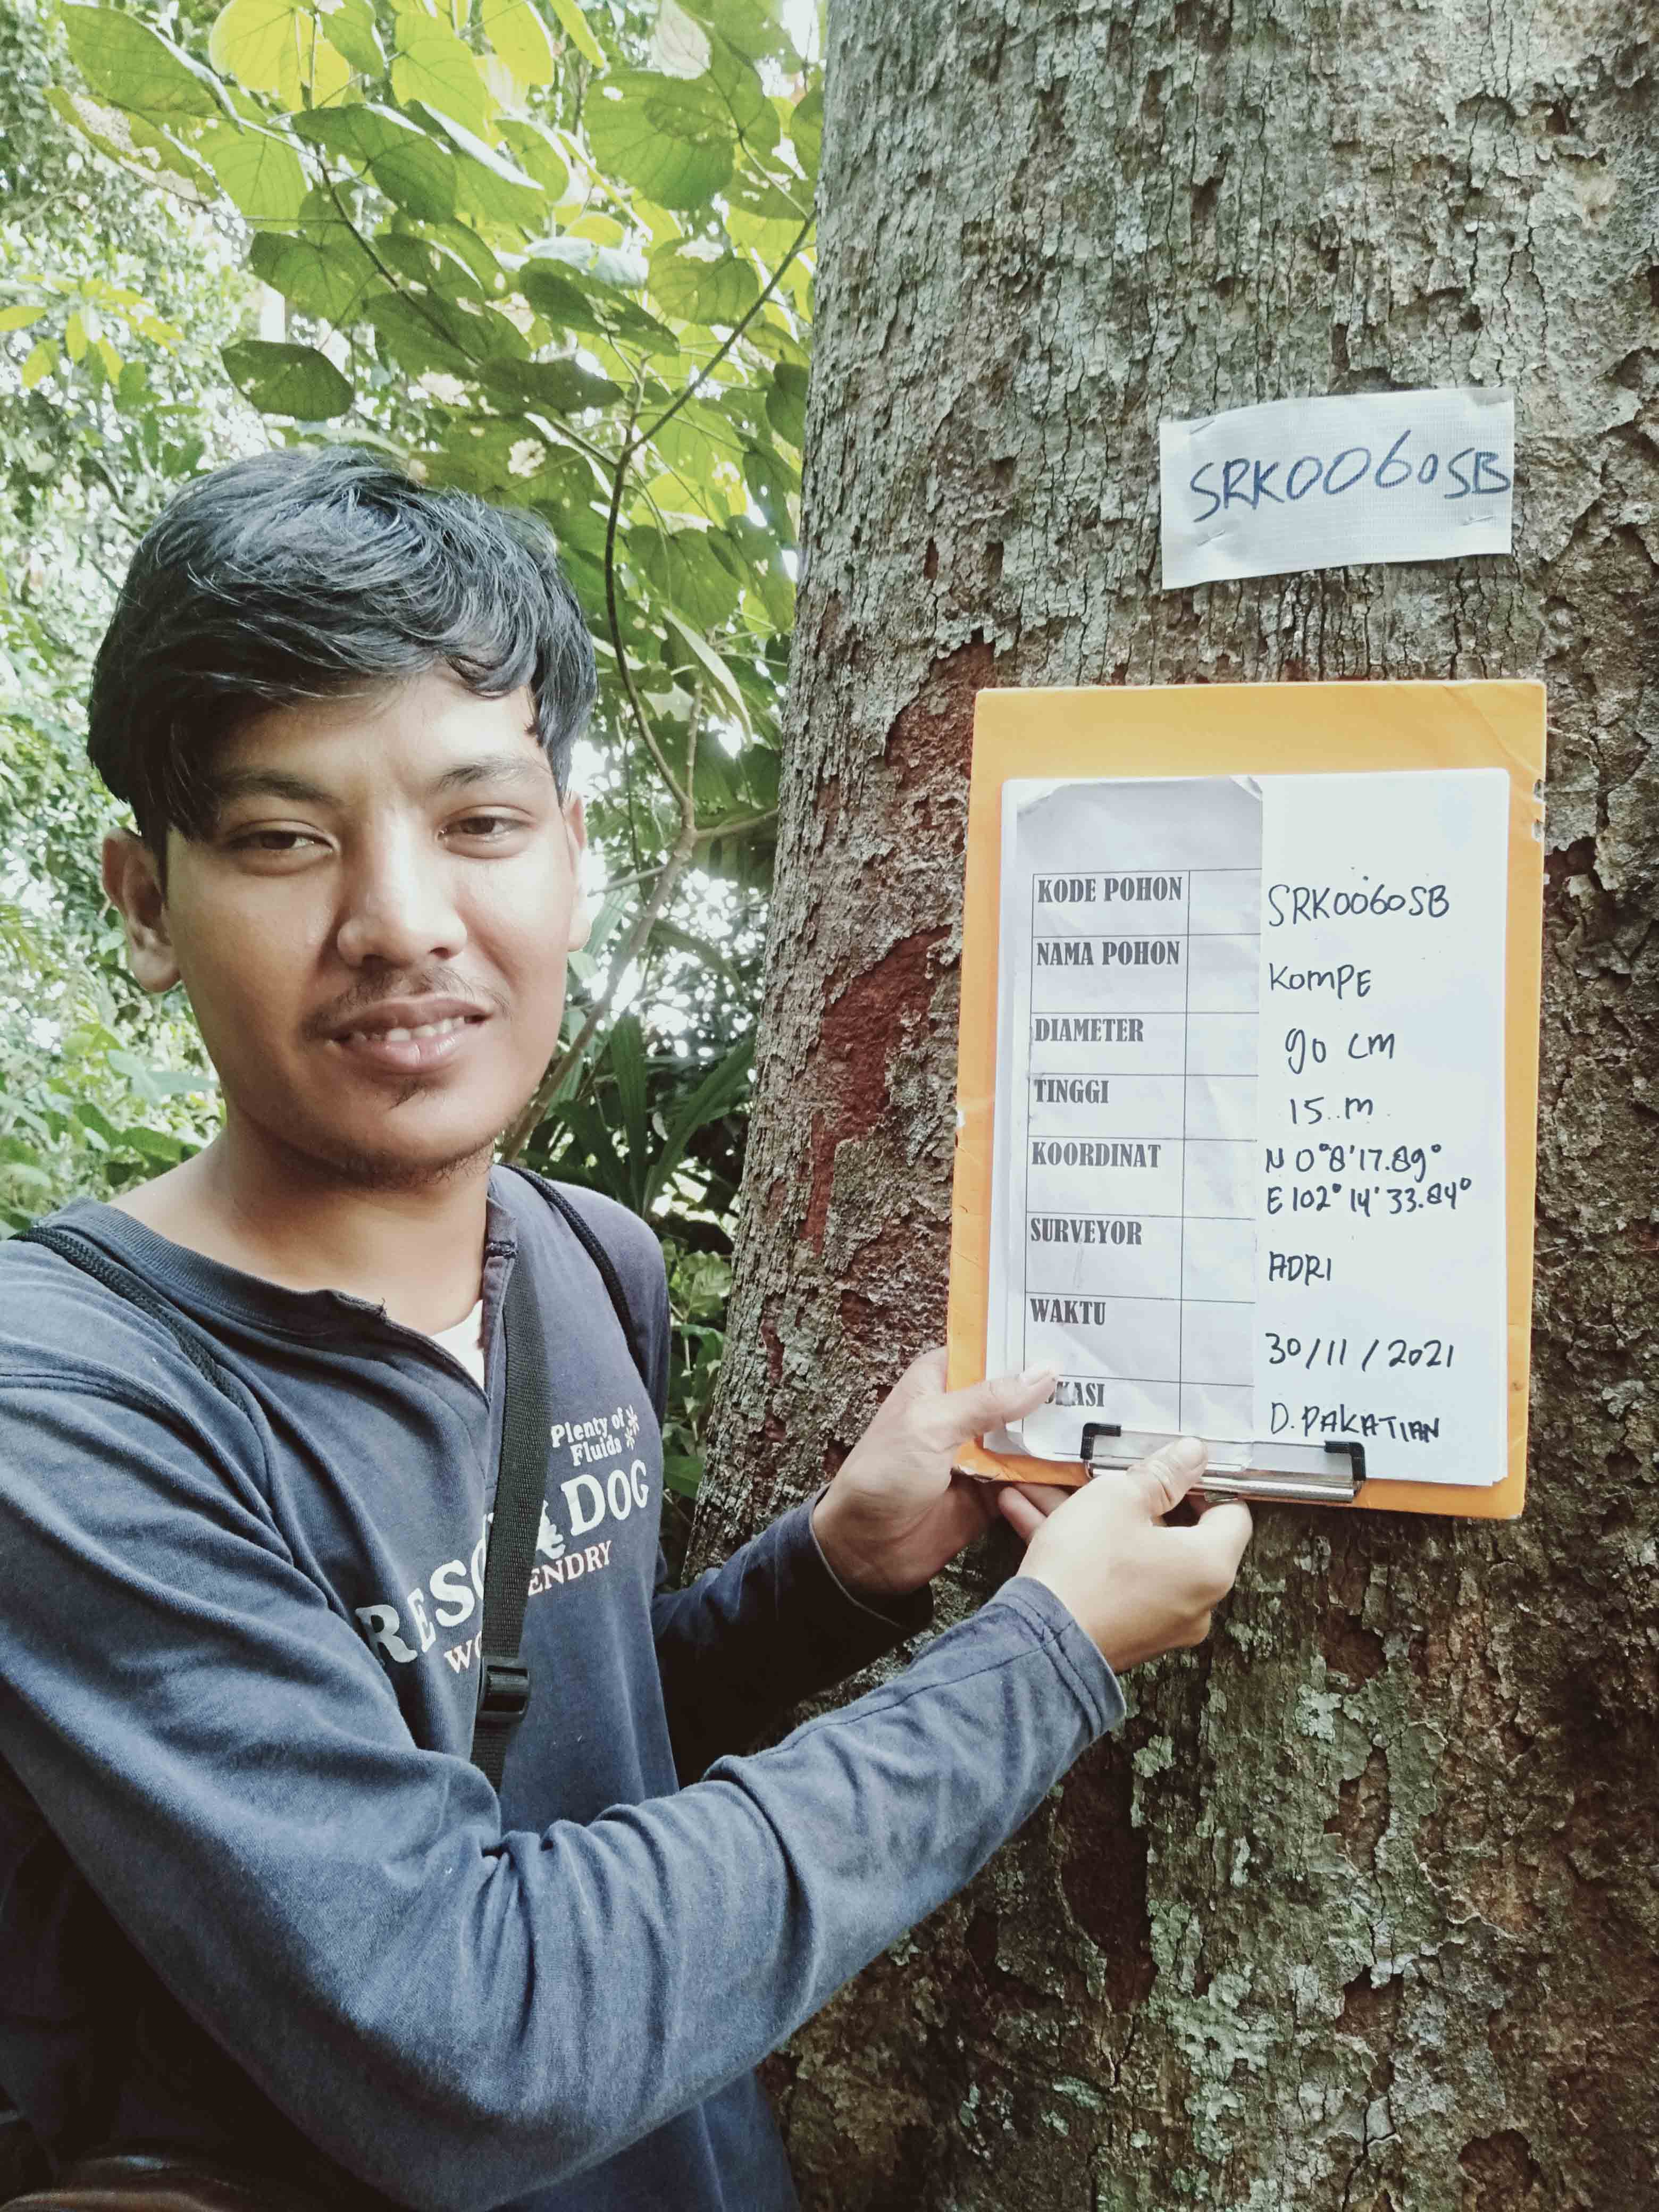 SRK0060SB
KODE POHON SRK0060SB
NAMA POHON KOMPE
DIAMETER 90 cm
TINGGI 15.m
KOORDINAT N 0°8'17.89°
E 102° 14' 33.84°
SURVEYOR ADRI
WAKTU 30/11/2021
D. PAKATIAN
Plenty of
Fluids
DOG